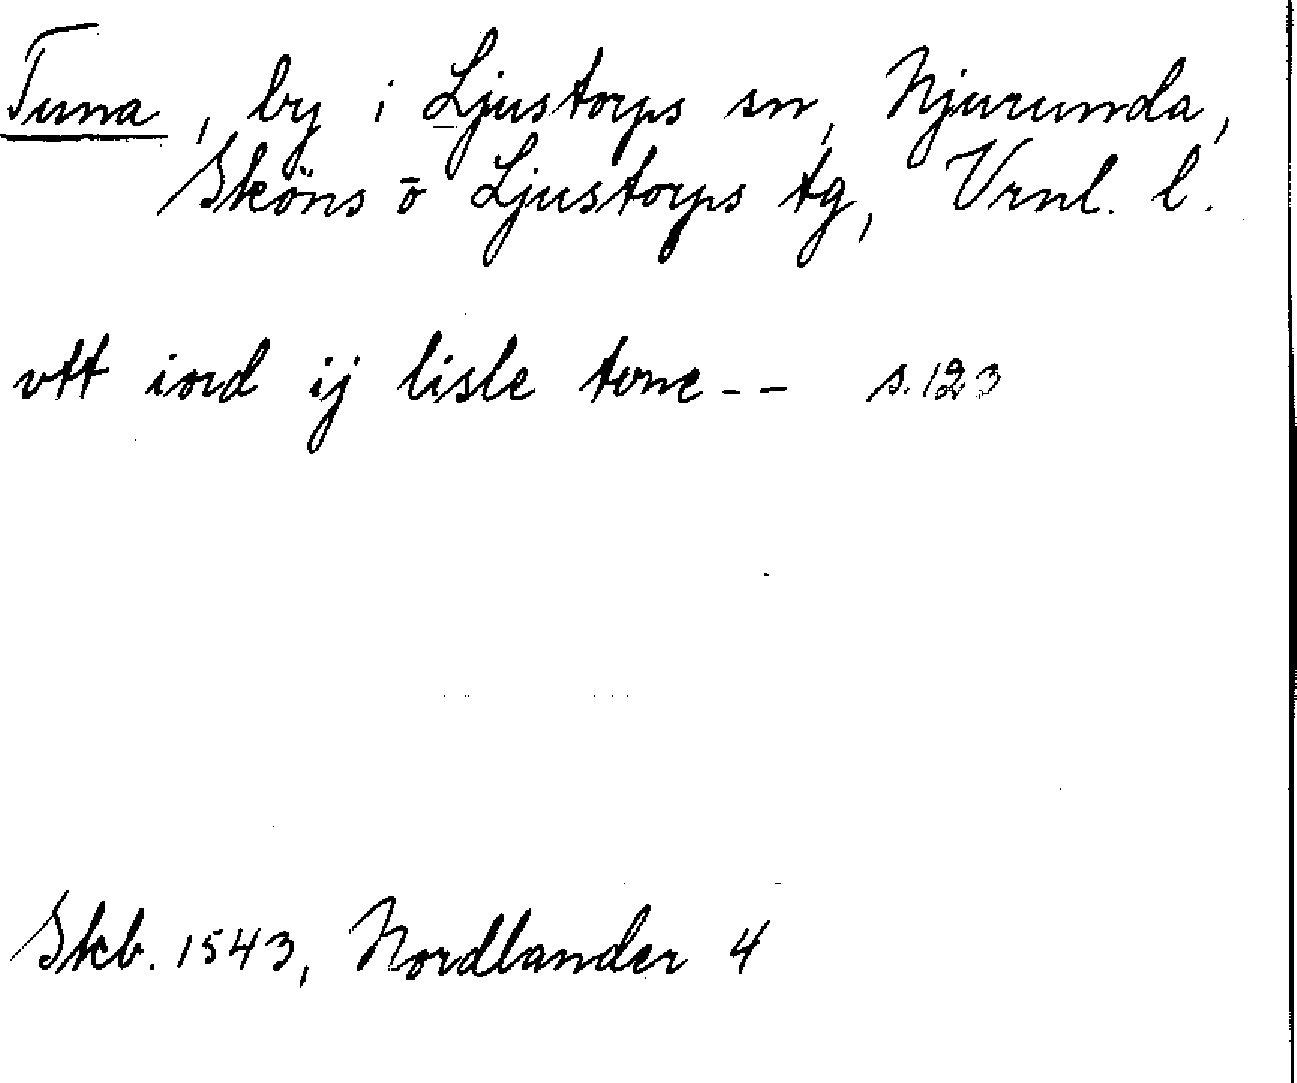 Tuna, by i Ljustorps sn, Njurunda,
Sköns o Ljustorps tg, Vrnl. l.
vtt iord ij lisle tvne -- s. 123
Skb. 1543, Nordlander 4